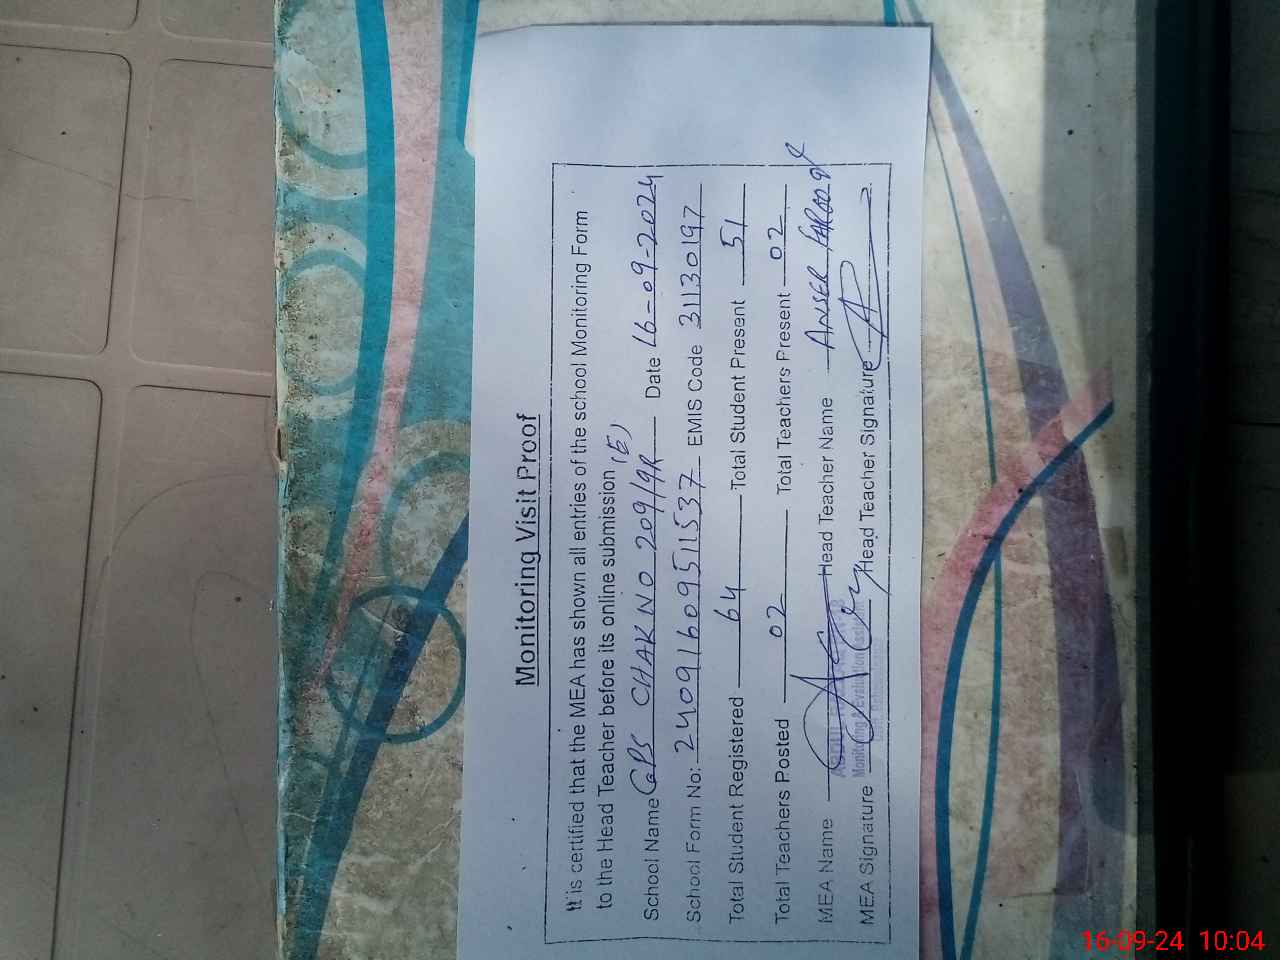 Monitoring Visit Proof
It is certified that the MEA has shown all entries of the school Monitoring Form
to the Head Teacher before its online submission
School Name GPS CHAK NO 209/9R (E) Date 16-09-2024
School Form No: 24091609511537 EMIS Code 31130197
Total Student Registered 64 Total Student Present 51
Total Teachers Posted 02 Total Teachers Present 02
MEA Name Head Teacher Name ANSER FAROOQ
MEA Signature Head Teacher Signature
Monitoring & Evaluation
16-09-24 10:04